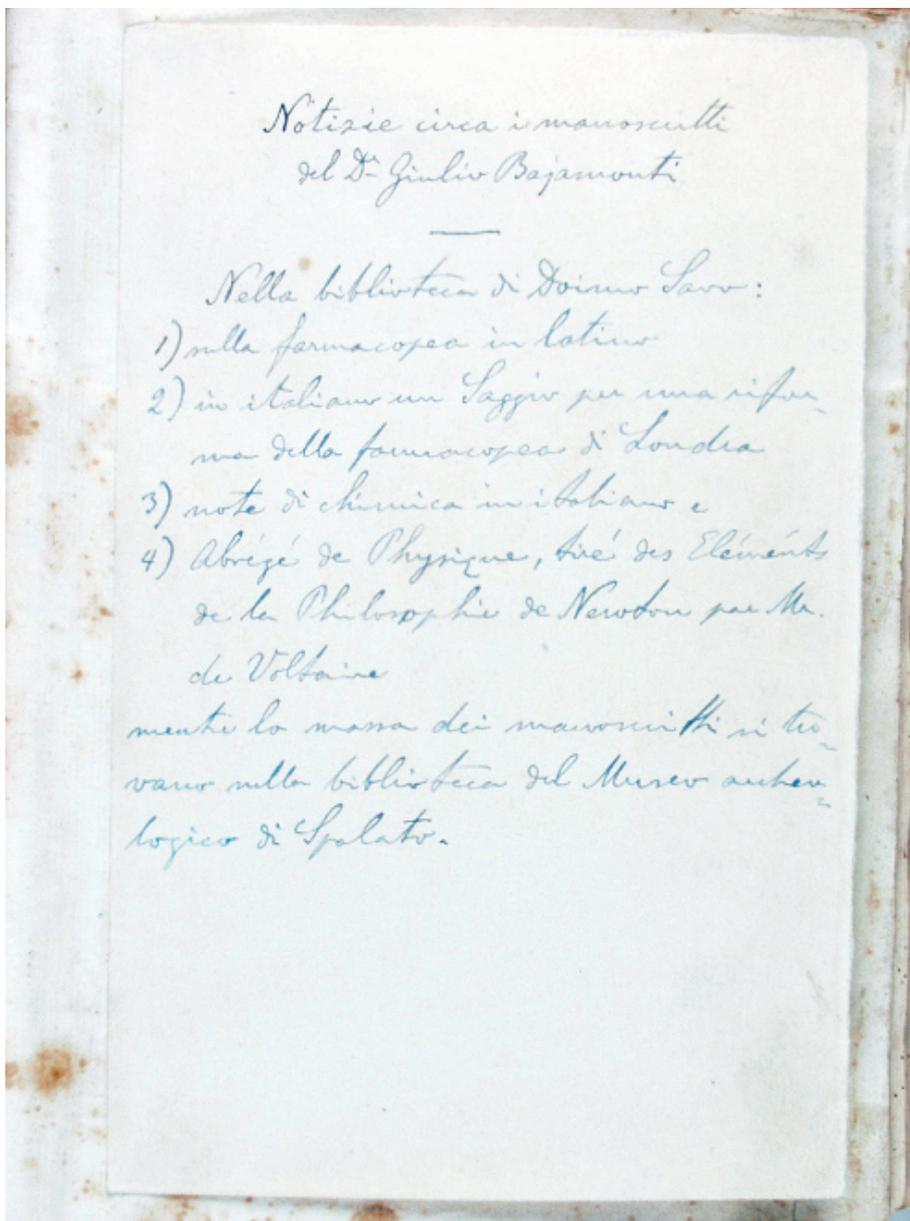 Notizie circa i manoscritti
del Dr Giulio Bajamonti
Nella biblioteca di Doimo Savo:
1) sulla farmacopea in latino
2) in italiano un Saggio per una rifor-
ma della farmacopea di Londra
3) note di chimica in italiano e
4) Abrégé de Physique, tiré des Eléménts
de la Philosophie de Newton par Mr.
de Voltaire
mentre la massa dei manoscritti si tro-
vano nella biblioteca del Museo archeo-
logico di Spalato.